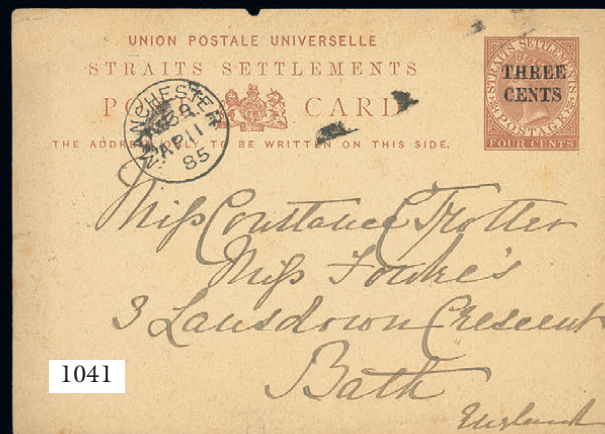 UNION POSTALE UNIVERSELLE
STRAITS SETTLEMENTS
POST CARD
THE ADDRESS ONLY TO BE WRITTEN ON THIS SIDE.
MANCHESTER
AP 11
85
STRAITS SETTLEMENTS
THREE
CENTS
POSTAGE
FOUR CENTS
Miss Constance Trotter
Miss Fowke's
3 Lansdown Crescent
Bath
England
1041